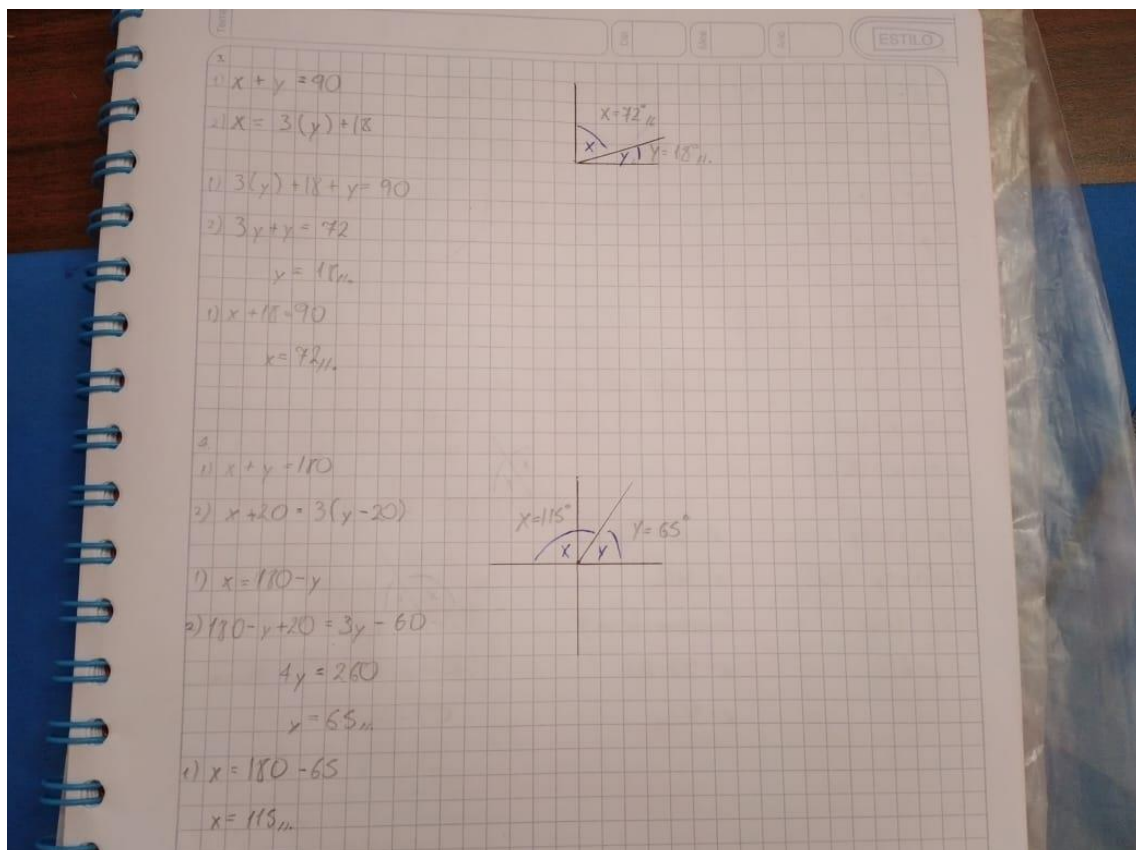 ESTILO
1) x + y = 90
2) x = 3(y)+18
1) 3(y)+18+y=90
2) 3y+y = 72
y = 18//.
1) x+18=90
x=72//.
X=72°//
x
y
Y=18°//.
4.
1) x + y = 180
2) x+20 = 3(y-20)
1) x = 180-y
2) 180-y+20 = 3y-60
4y = 260
y = 65//.
1) x = 180-65
x = 115//.
X=115°
x
y
Y=65°